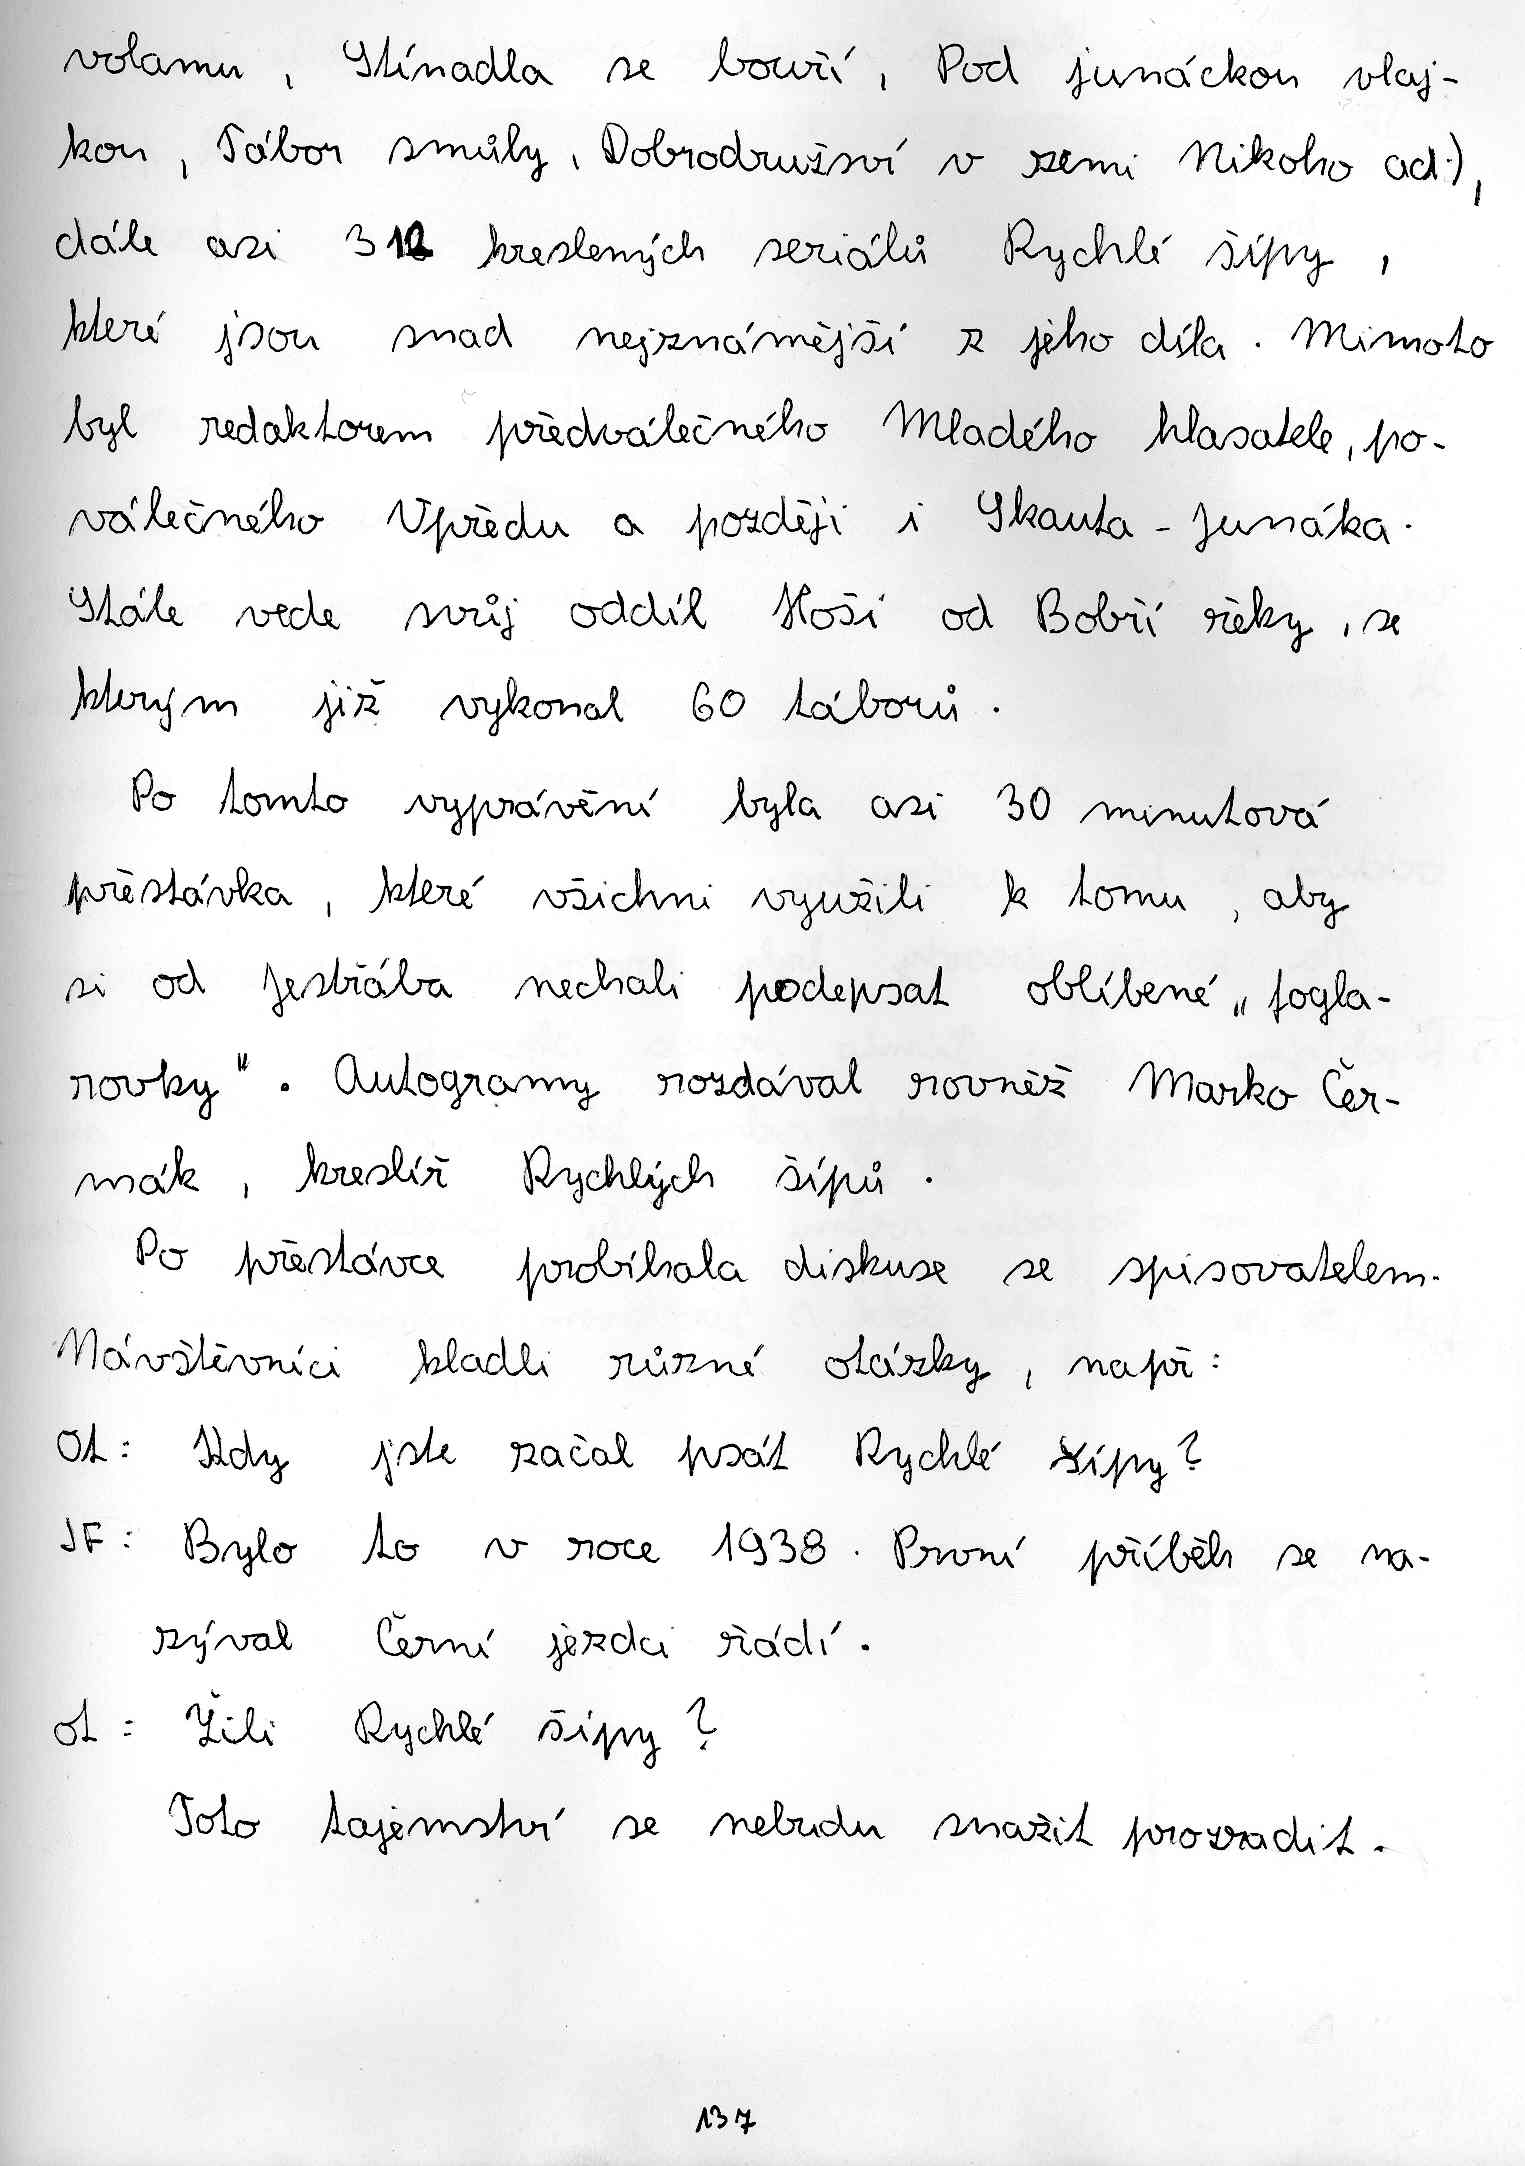 volamu, Stínadla se bouří, Pod junáckou vlaj-
kou, Tábor smůly, Dobrodružsví v zemi Nikoho ad.),
dále asi 312 kreslených seriálů Rychlé šípy,
které jsou snad nejznámější z jeho díla. Mimoto
byl redaktorem předválečného Mladého hlasatele, po-
válečného Vpředu a později i Skauta - Junáka.
Stále vede svůj oddíl Hoši od Bobří řeky, se
kterým již vykonal 60 táborů.
Po tomto vyprávění byla asi 30 minutová
přestávka, které všichni využili k tomu, aby
si od Jestřába nechali podepsat oblíbené „fogla-
rovky". Autogramy rozdával rovněž Marko Čer-
mák, kreslíř Rychlých šípů.
Po přestávce probíhala diskuse se spisovatelem.
Návštěvníci kladli různé otázky, např:
Ot: Kdy jste začal psát Rychlé šípy?
JF: Bylo to v roce 1938. První příběh se na-
zýval Černí jezdci řádí.
ot: Žili Rychlé šípy?
Toto tajemství se nebudu snažit prozradit.
137